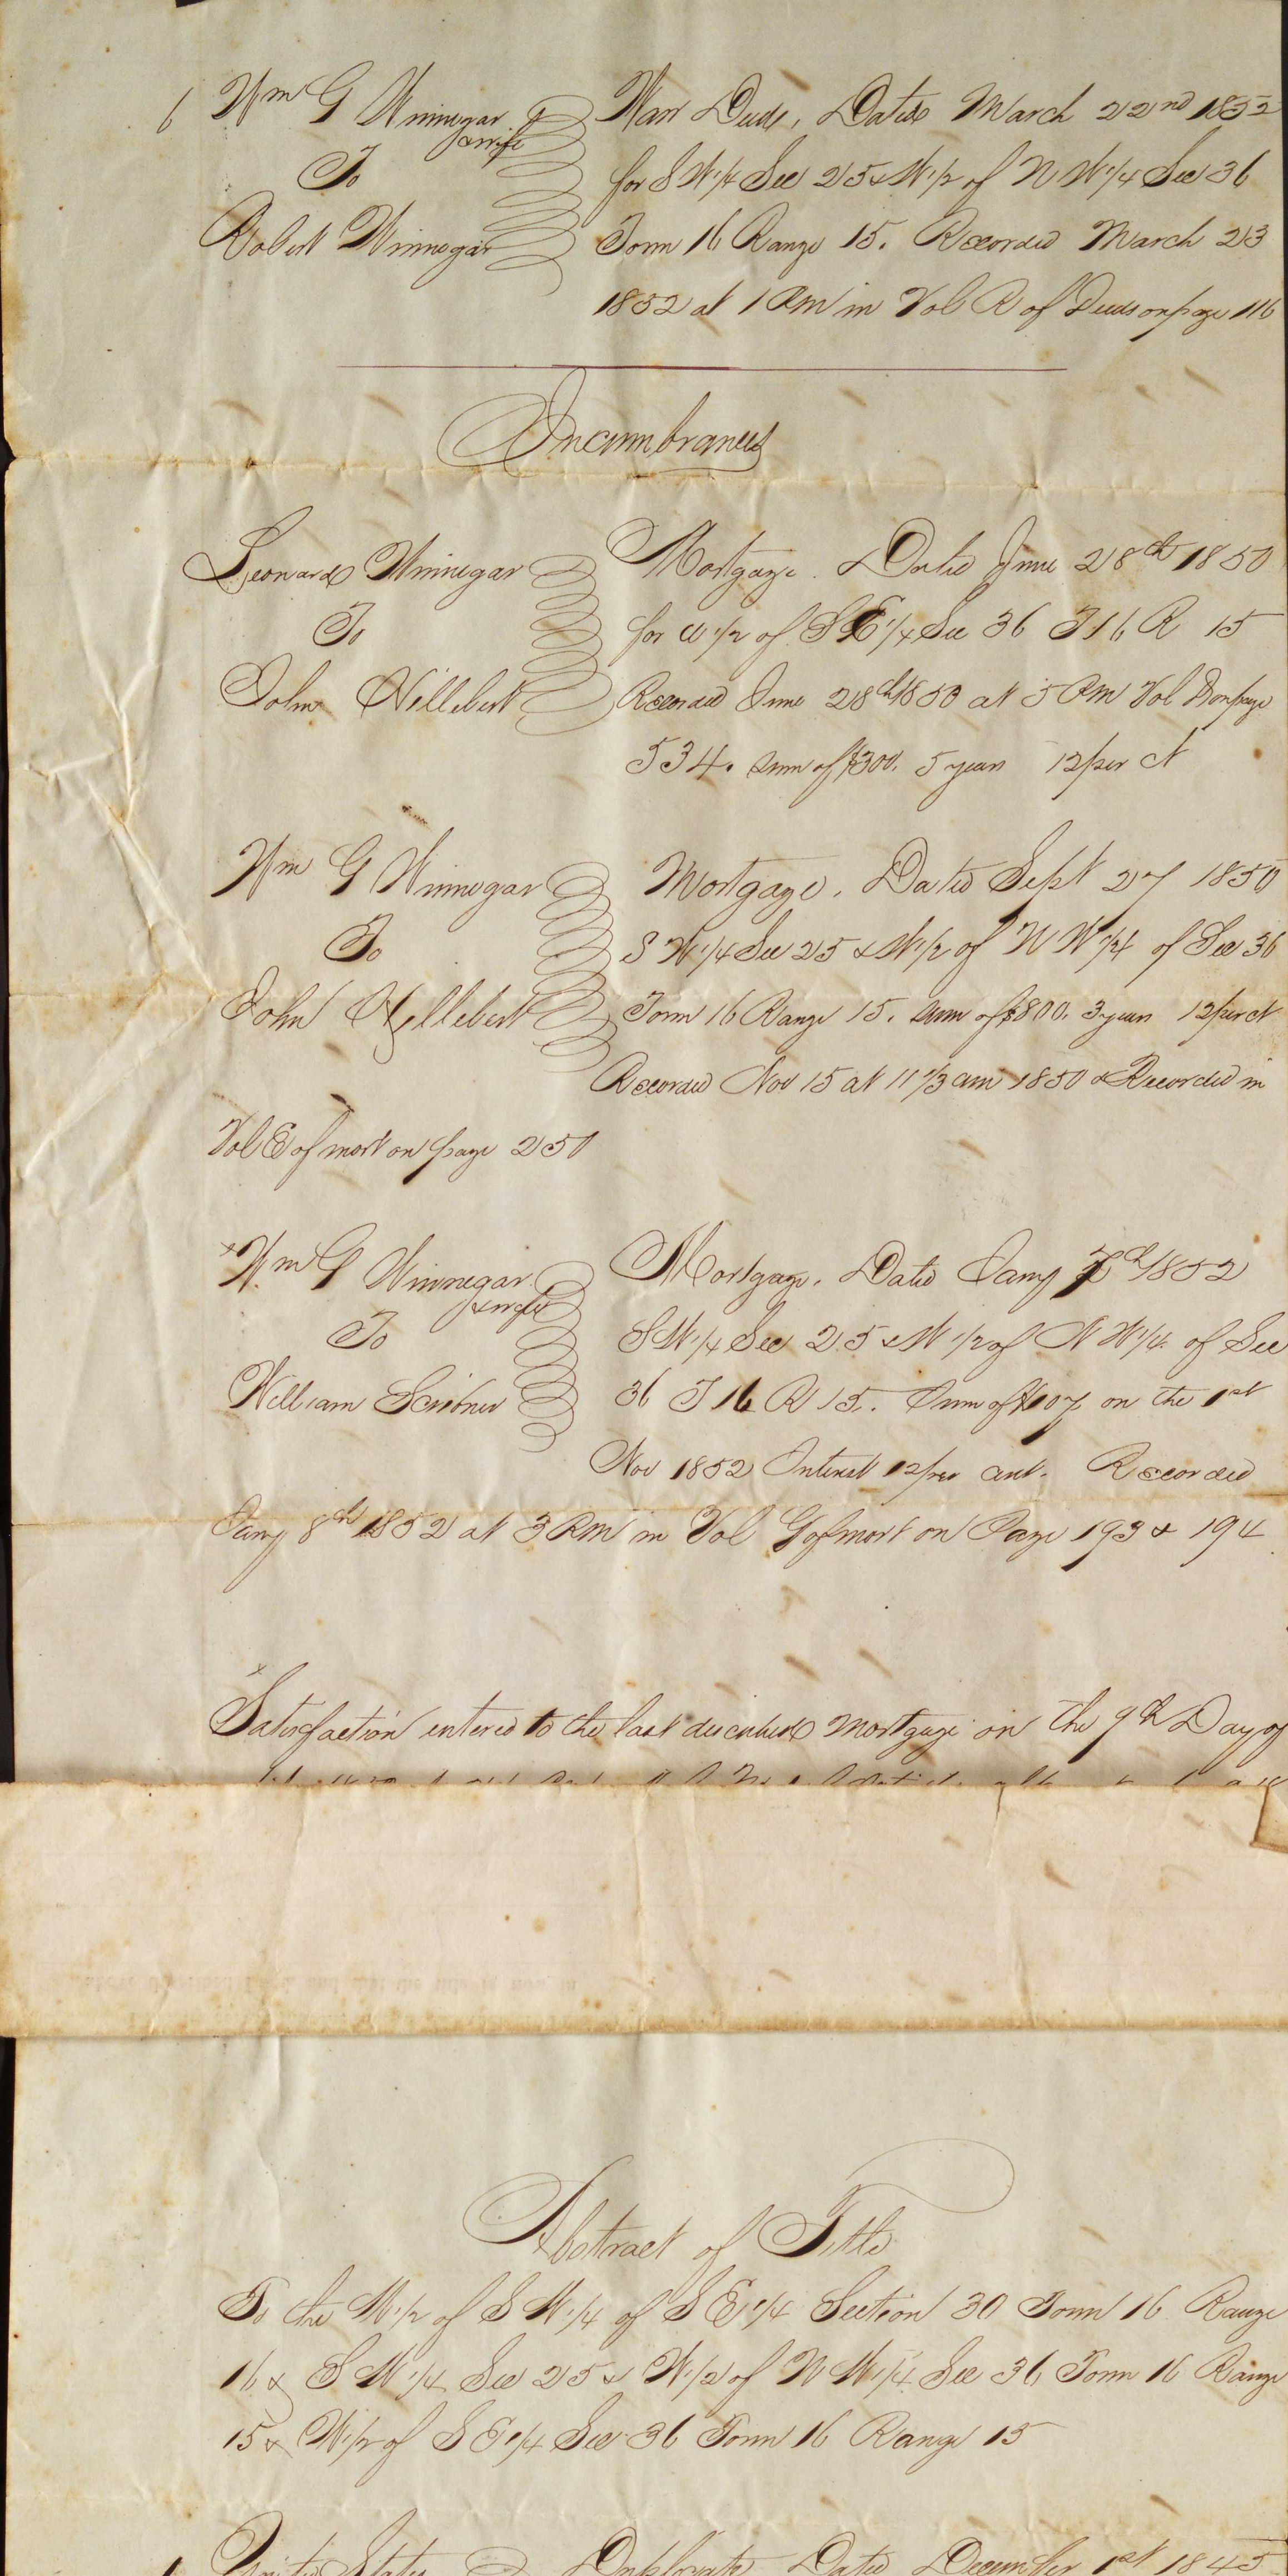 6 Wm G Winnegar & wife
To
Robert Winnegar
Warr Deed, Dated March 22nd 1852
for S W 1/4 Sec 25 & W 1/2 of N W 1/4 Sec 36
Town 16 Range 15. Recorded March 23
1852 at 1 PM in Vol R of Deeds on page 116
Incumbrances
Leonard Winnegar
To
John Hillebert
Mortgage. Dated June 28th 1850
for W 1/2 of S E 1/4 Sec 36 T 16 R 15
Recorded June 28th 1850 at 5 PM Vol on page
534. Sum of $300. 5 years 12 per ct
Wm G Winnegar
To
John Hillebert
Mortgage. Dated Sept 27 1850
S W 1/4 Sec 25 & W 1/2 of N W 1/4 of Sec 36
Town 16 Range 15. Sum of $800. 3 years 12 per ct
Recorded Nov 15 at 11 1/3 am 1850 & Recorded in
Vol E of mort on page 250
x Wm G Winnegar & wife
To
William Scribner
Mortgage. Dated Jany 1852
S W 1/4 Sec 25 & W 1/2 of N W 1/4 of Sec
36 T 16 R 15. Sum of $107 on the 1st
Nov 1852 Interest 12 per cent. Recorded
Jany 8th 1852 at 3 PM in Vol G of mort on Page 193 & 194
x
Satisfaction entered to the last described mortgage on the 9th Day of
Abstract of Title
To the W 1/2 of S W 1/4 of S E 1/4 Section 30 Town 16 Range
16 & S W 1/4 Sec 25 & W 1/2 of N W 1/4 Sec 36 Town 16 Range
15 & W 1/2 of S E 1/4 Sec 36 Town 16 Range 15
United States
Duplicate Dated December 1st 1845